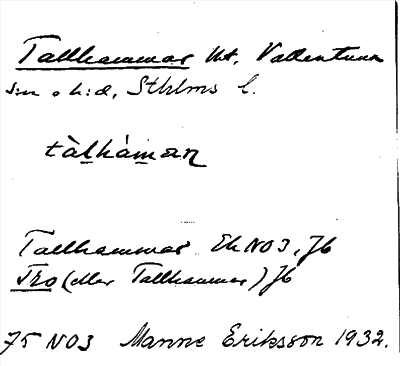 Tallhammar Vallentuna
sn o h:d, Sthlms l.
tàl̠hàm̠an
Tallhammar Ek NO3, Jb
Tro (eller Tallhammar) Jb
75 NO3 Manne Eriksson 1932.